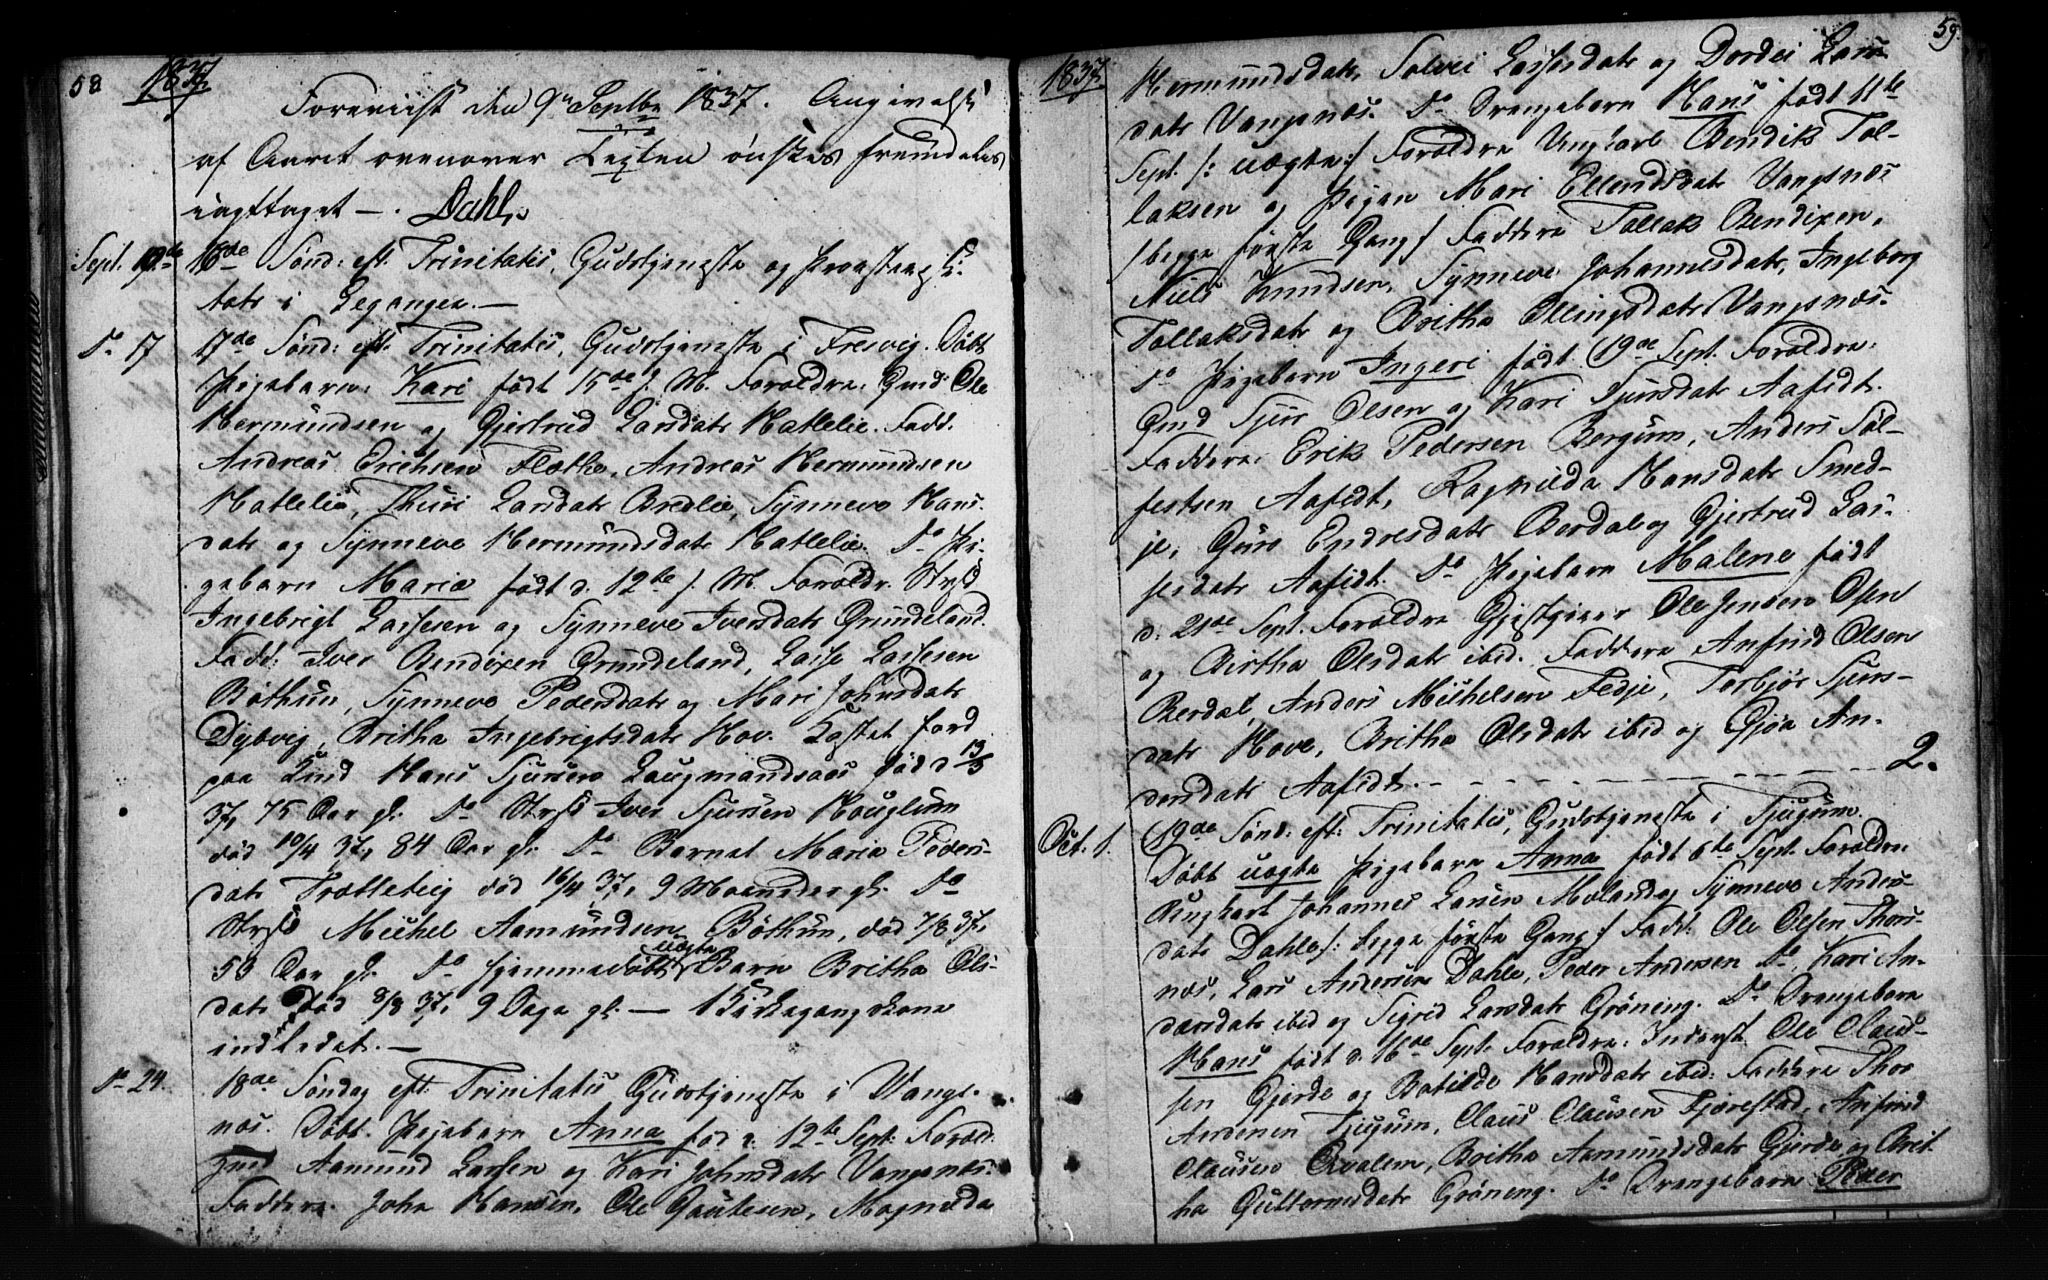 58 1837.
Foreviist den 9de Septbr 1837. Angivelse
af Aaret ovenover Texten ønskes fremdeles
iagttaget —. Dahl.
Sept. 10de 16de Sønd: eft. Trinitatis, Gudstjeneste og
tats i Leganger. —
Do 17 17de Sønd: eft. Trinitatis, Gudstjeneste i Fresvig. Døbt
Pigebarn: Kari født 15de f. M. Forældre: Gmd: Ole
Hermundsen og Gjertrud Larsdatr Hatlelie. Fadd.
Andreas Erichsen Flæthe, Andreas Hermundsen
Hatlelie, Thuri Larsdatr Bredlie, Synneve Hans-
datr og Synneve Hermundsdatr Hatlelie. Do Pi-
gebarn Maria født d. 12te f. M. Forældr.
Ingebrigt Lassesen og Synneve Iversdatr Grundeland.
Fadd: Iver Bendixen Grundeland, Lasse Lassesen
Bøthun, Synneve Pedersdatr og Mari Johnsdatr
Dybvig, Britha Ingebrigtsdatr Hov. Kastet Jord
paa Hans Sjursen Laugmandsaas død d 13/3
37, 75 Aar gl. Do Iver Sjursen Houglum
død 10/4 37, 84 Aar gl. Do Barnet Maria Peders-
datr Trætteteig død 16/4 37, 9 Maaneder gl. Do
Michel Aamundsen Bøthun, død 7/8 37,
53 Aar gl. Do hjemmedøbt uægte Barn Britha Ols-
datr død 8/8 37, 9 Dage gl. — 1 Kirkegangskone
indledet. —
Do 24. 18de Søndag eft. Trinitatis Gudstjeneste i Vangs-
næs. Døbt Pigebarn Anna fød d. 12te Sept: Foræld:
Gmd Aamund Lassen og Kari Johnsdatr Vangsnæs.
Faddere John Hansen, Ole Gautesen, Magnilda
59.
1837.
Hermundsdatr, Solvei Lassesdatr og Dordei Lars-
datr Vangsnæs. Do Drengebarn Hans født 11te
Sept. /: uægte :/ Forældre Ungkarl Bendik Tol-
laksen og Pigen Mari Ellendsdatr Vangsnæs
/ begge første Gang / Faddere Tollak Bendixen,
Niels Knudsen, Synneve Johannesdatr, Ingeborg
Tollaksdatr og Britha Ellingsdatr Vangsnæs.
Do Pigebarn Ingeri født 19de Sept. Forældre:
Gmd Sjur Olsen og Kari Sjursdatr Aafedt.
Faddere: Erik Pedersen Bergum, Anders Søl-
festsen Aafedt, Ragnilda Hansdatr Smed-
je, Guro Endresdatr Berdal og Gjertrud Las-
sesdatr Aafedt. Do Pigebarn Malene født
d. 21de Sept. Forældre Gjestgiver Ole Jensen Osen
og Birtha Olsdatr ibid. Faddere Anfind Olsen
Berdal, Anders Michelsen Fedje, Torbjør Sjurs-
datr Hove, Britha Olsdatr ibid og Gjøa An-
dersdatr Aafedt. — 2.
Oct. 1. 19de Sønd: eft: Trinitatis, Gudstjeneste i Tjugum.
Døbt uægte Pigebarn Anna født 6te Sept. Forældre
Ungkarl Johannes Larsen Moland og Synneve Anders-
datr Dahle /: begge første Gang :/ Fadd: Ole Olsen Thors-
næs, Lars Andersen Dahle, Peder Andersen Do, Kari An-
dersdatr ibid og Sigrid Larsdatr Grøneng. Do Drengebarn
Hans født d. 16de Sept. Forældre: Inderst Ole Claus-
sen Gjerde og Botilde Hansdatr ibid: Faddere Thor
Andersen Tjugum, Claus Clausen Fjærestad, Anfind
Clausen Qvalem, Britha Aamundsdatr Gjerde og Brit-
ha Guttormsdatr Grøneng. Do Drengebarn Peder